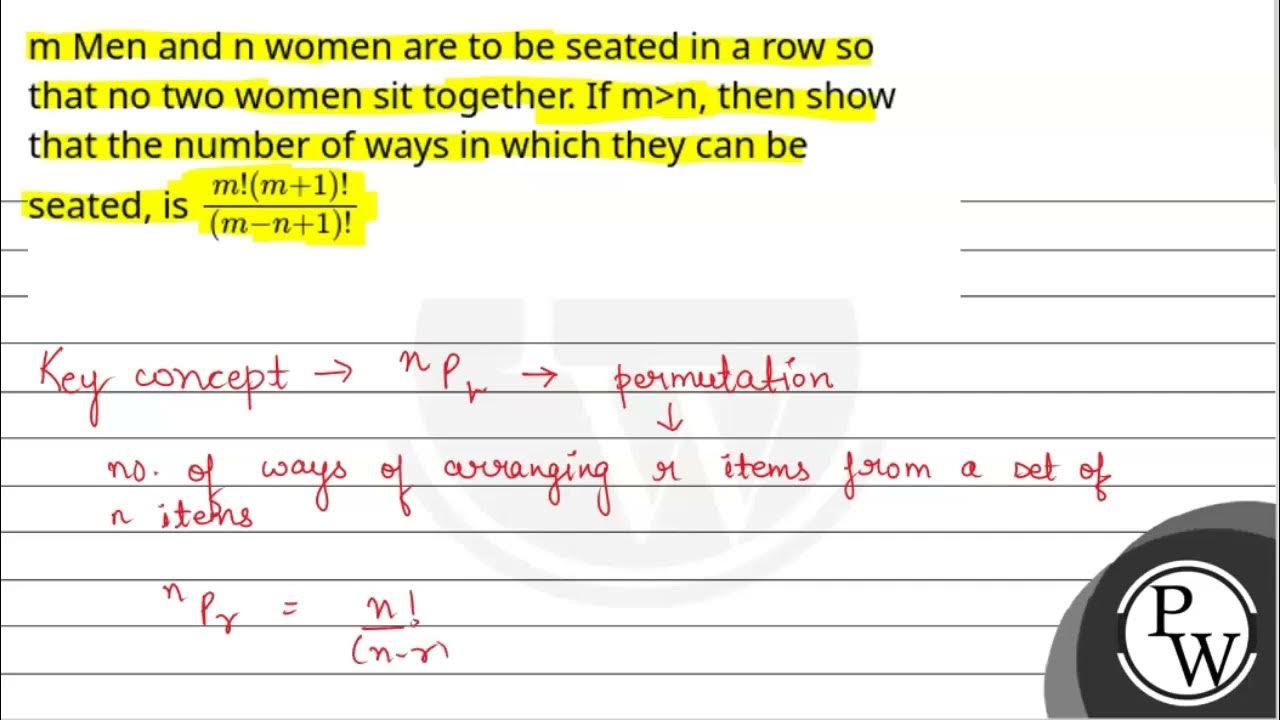 m Men and n women are to be seated in a row so
that no two women sit together. If m>n, then show
that the number of ways in which they can be
seated, is m!(m+1)!/(m−n+1)!
Key concept → ⁿPᵣ → permutation
↓
no. of ways of arranging r items from a set of
n items
ⁿPᵣ = n!/(n-r)
P
W